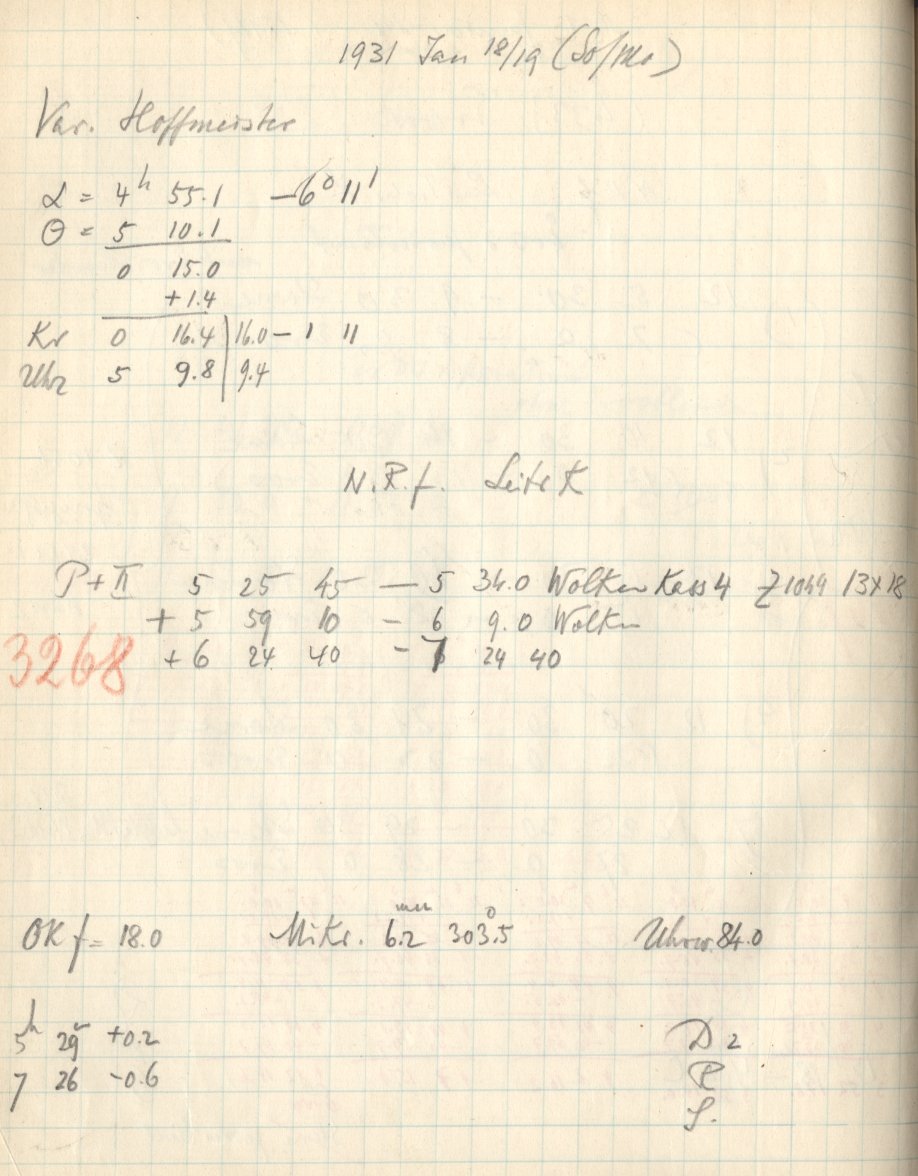 1931 Jan 18/19 (So/Mo)
Var. Hoffmeister
α = 4h 55.1 -6° 11'
Θ = 5 10.1
0 15.0
+1.4
Kr 0 16.4 | 16.0 - 1 11
Uhr 5 9.8 | 9.4
N.R.f. Seite K
P+II 5 25 45 — 5 34.0 Wolken Kass 4 Z 1049 13x18
+ 5 59 10 - 6 9.0 Wolken
3268 + 6 24 40 - 7 24 40
OK f = 18.0 Mikr. 6.2 mm 303.5° Uhrw. 84.0
5h 29m +0.2 D 2
7 26 -0.6 P
S.